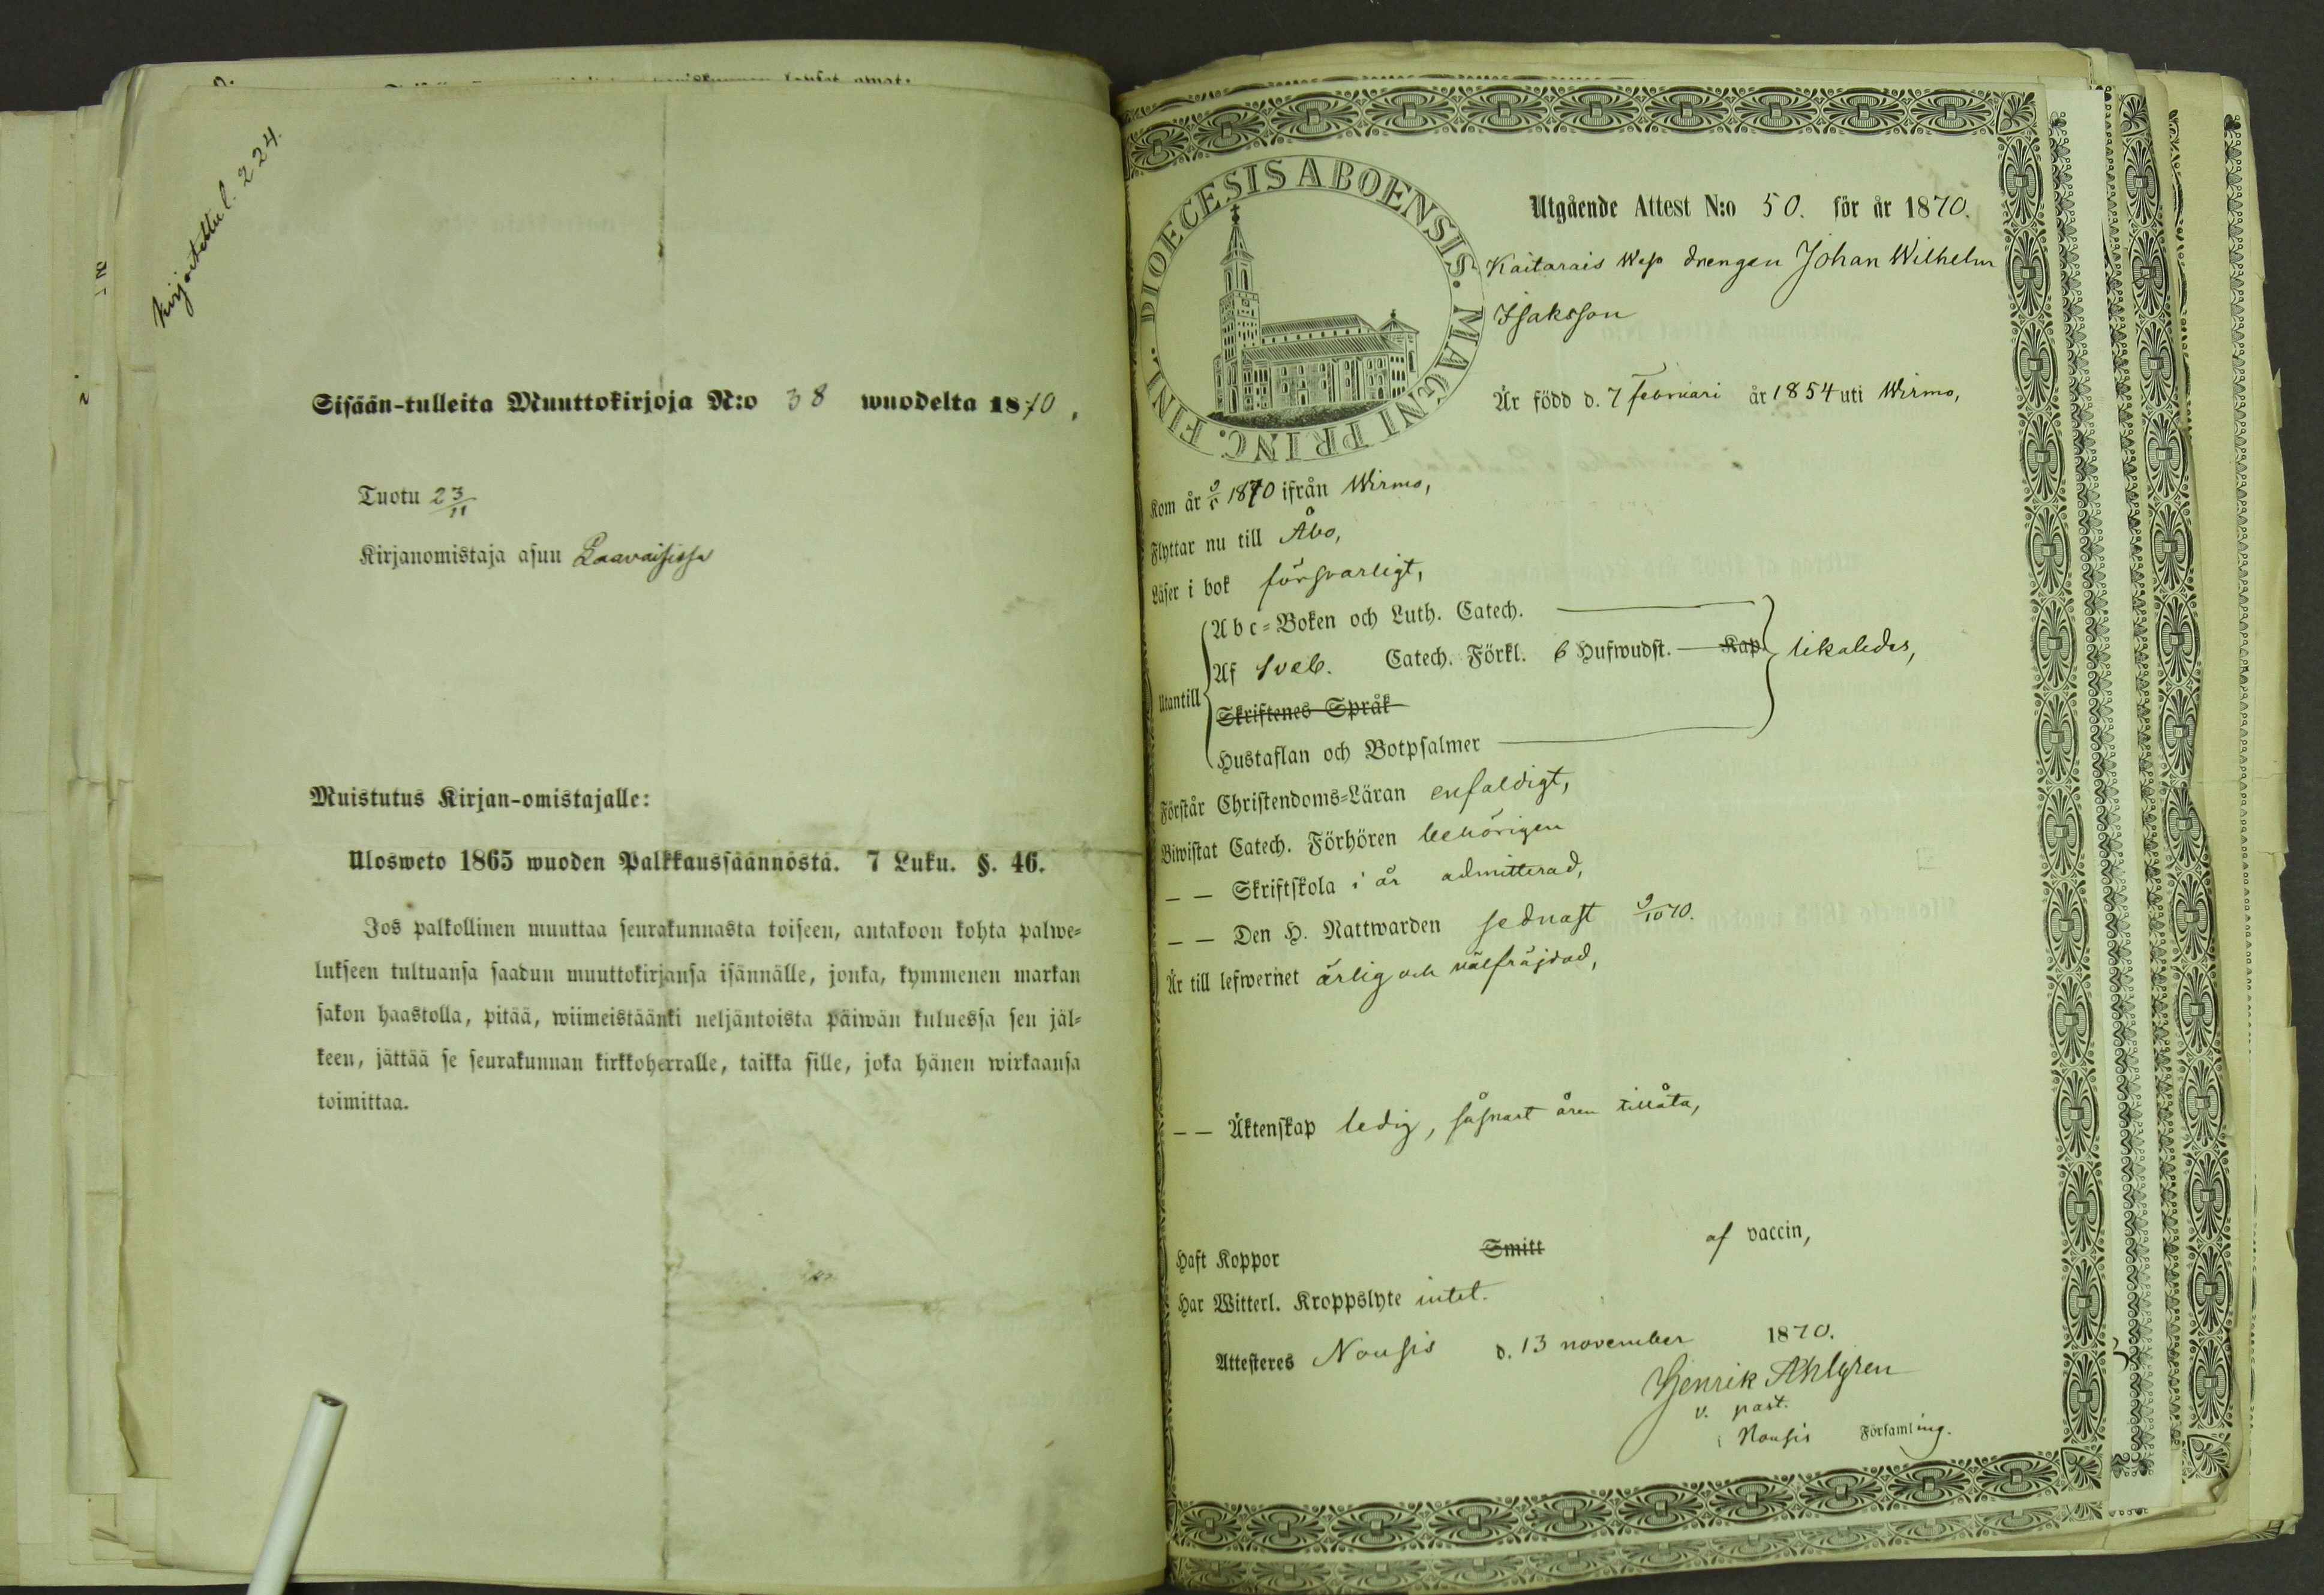 Kirjoitettu l. 224.
Sisään-tulleita Muuttokirjoja N:o 38 wuodelta 1870.
Tuotu 23/11
Kirjanomistaja asuu Paavaisissa
Muistutus Kirjan-omistajalle:
Ulosweto 1865 wuoden Palkkaussäännöstä. 7 Luku. §. 46.
Jos palkollinen muuttaa seurakunnasta toiseen, antakoon kohta palwe-
lukseen tultuansa saadun muuttokirjansa isännälle, jonka, kymmenen markan
sakon haastolla, pitää, wiimeistäänki neljäntoista päiwän kuluessa sen jäl-
keen, jättää se seurakunnan kirkkoherralle, taikka sille, joka hänen wirkaansa
toimittaa.
DIOECESIS ABOENSIS. MAGNI PRINC. FINL.
Utgående Attest N:o 50. för år 1870.
Kaitarais drengen Johan Wilhelm
Isaksson
Är född d. 7 februari år 1854 uti Wirmo,
Kom år 1870 ifrån Wirmo,
Flyttar nu till Åbo,
Läser i bok försvarligt,
Utantill
Abc-Boken och Luth. Catech.
Af Sveb. Catech. Förkl. 6 Hufwudst. Kap likaledes,
Skriftenes Språk
Hustaflan och Botpsalmer
Förstår Christendoms-Läran enfaldigt,
Biwistat Catech. Förhören behörigen
— — Skriftskola i år admitterad,
— — Den H. Nattwarden sednast 9/10 70.
Är till lefwernet ärlig och välfräjdad,
— — Äktenskap ledig, såsnart åren tillåta,
Haft Koppor Smitt af vaccin,
Har Witterl. Kroppslyte intet.
Attesteres Nousis d. 13 november 1870.
Henrik Ahlgren
v. past.
i Nousis Församling.